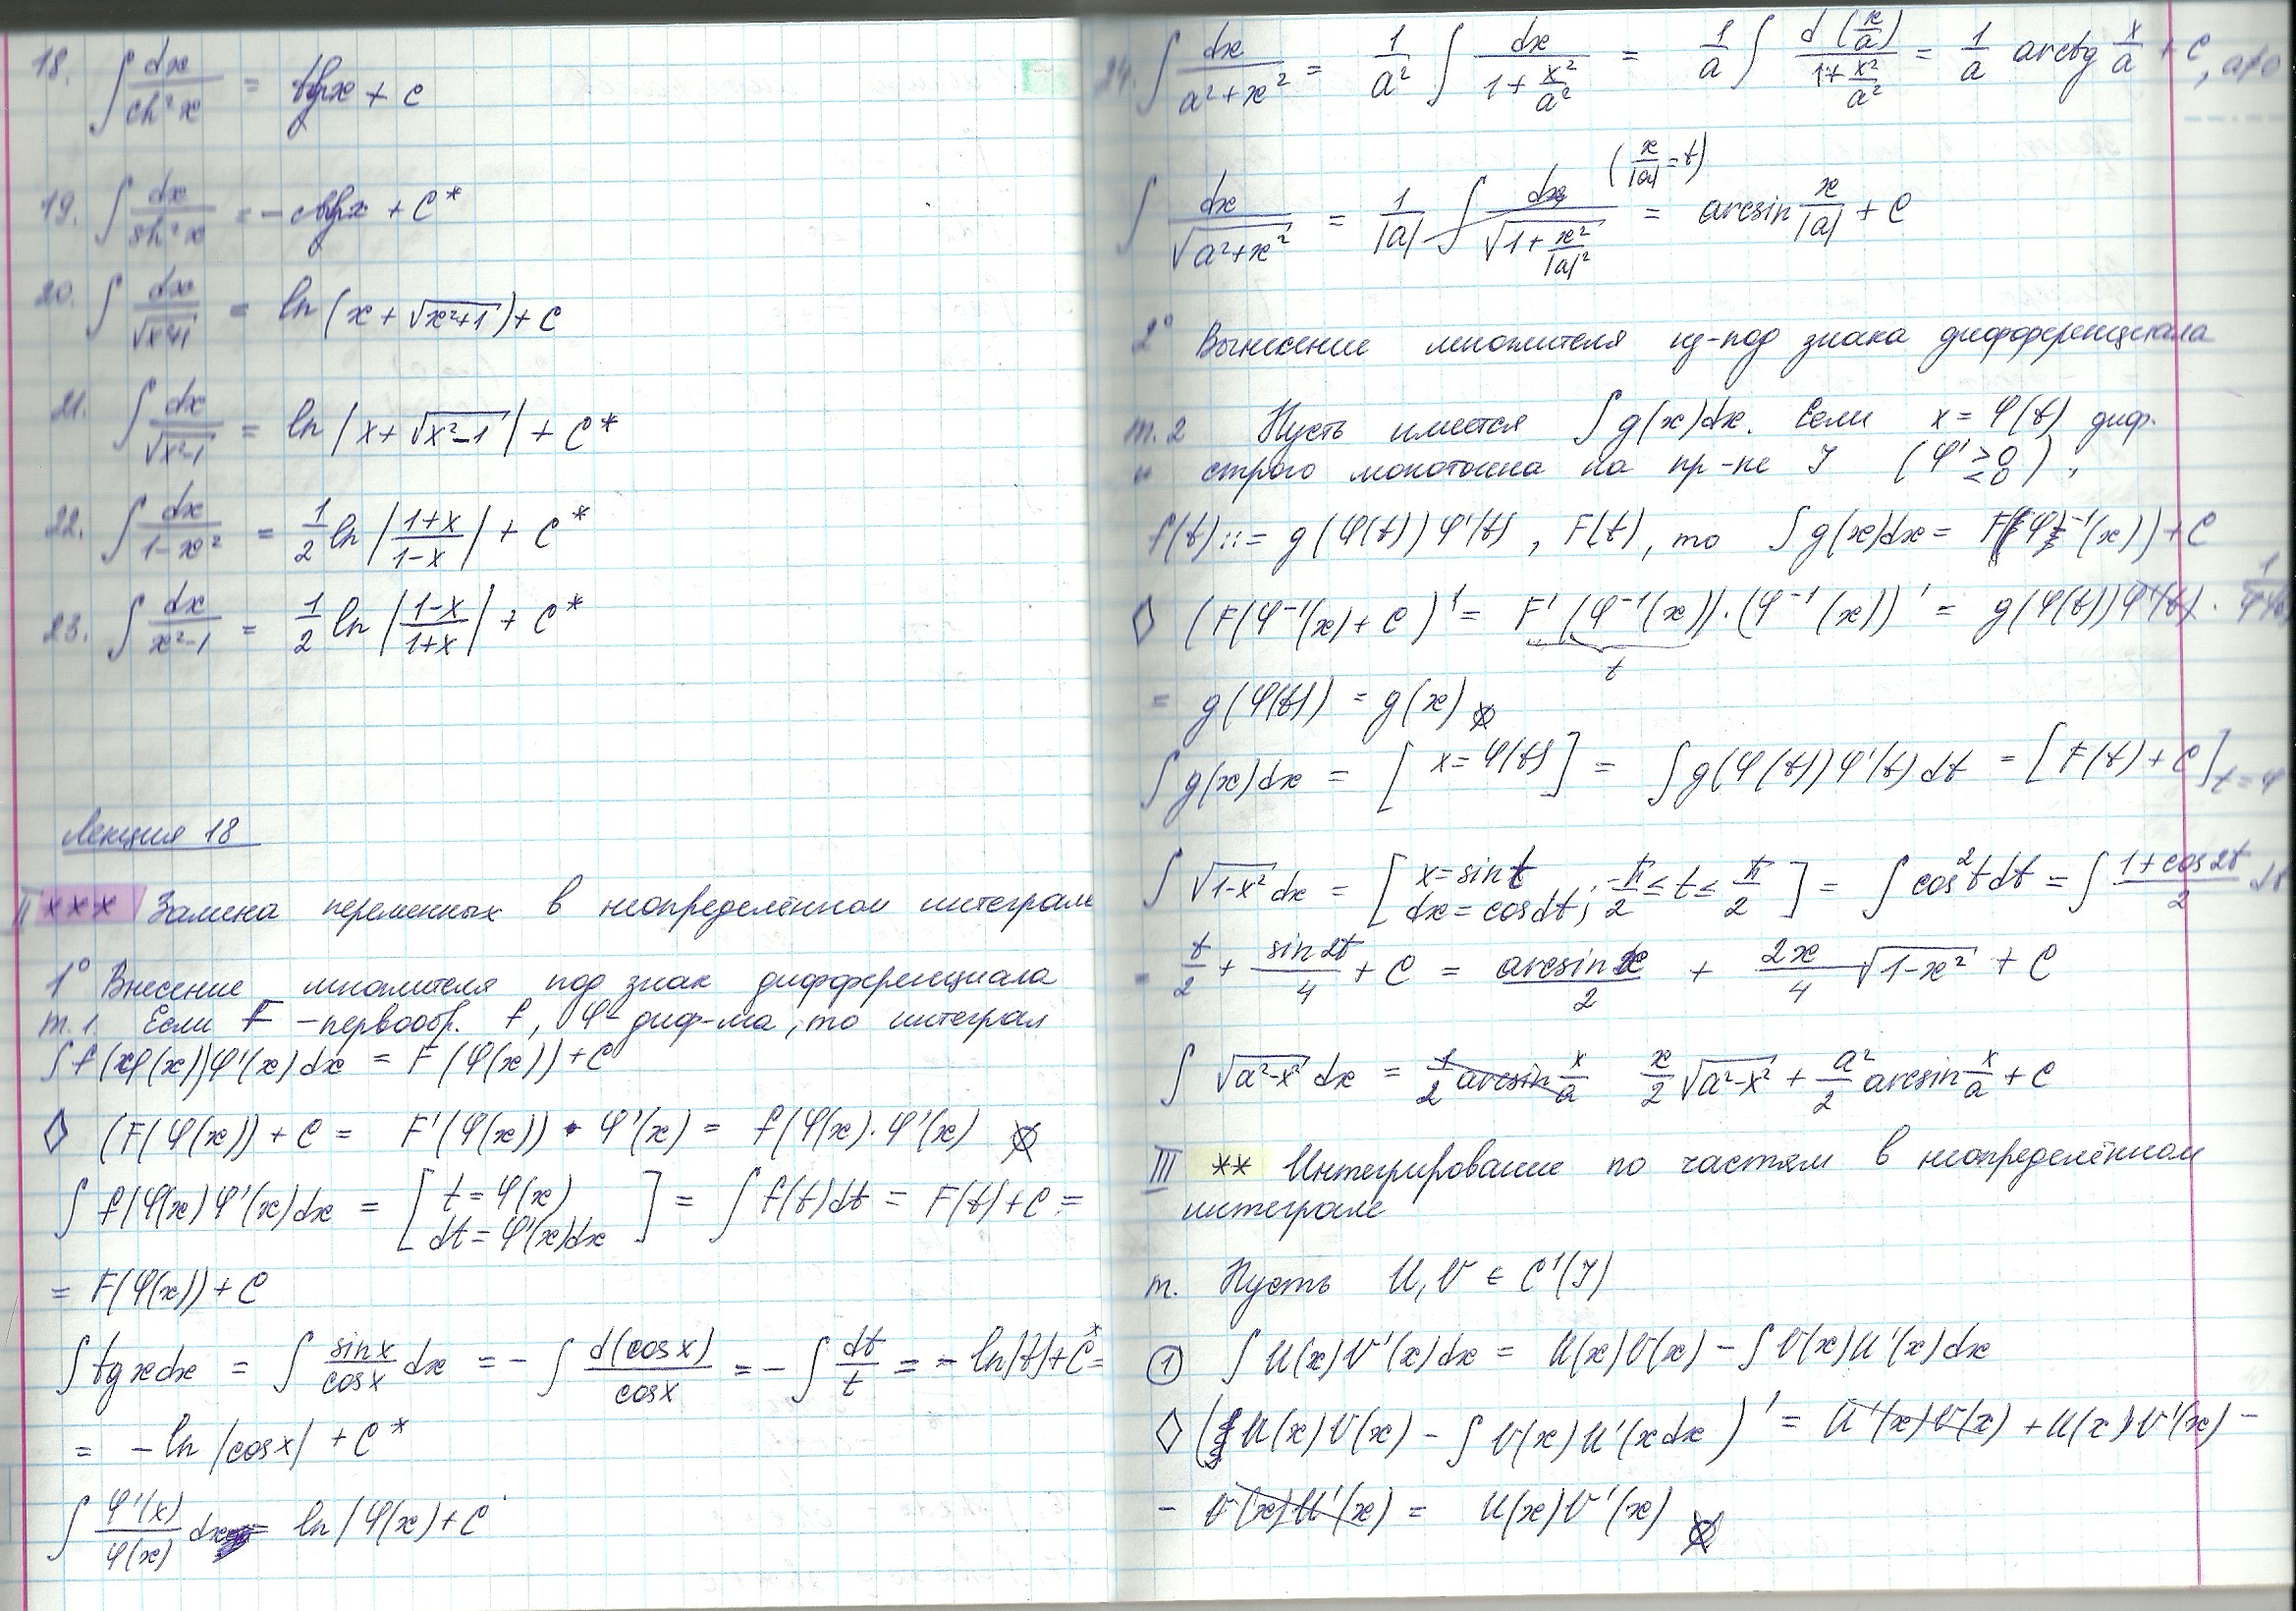 18. ∫ dx/ch²x = thx + C
19. ∫ dx/sh²x = - cthx + C*
20. ∫ dx/√(x²+1) = ln(x + √(x²+1)) + C
21. ∫ dx/√(x²-1) = ln|x + √(x²-1)| + C*
22. ∫ dx/(1-x²) = 1/2 ln|(1+x)/(1-x)| + C*
23. ∫ dx/(x²-1) = 1/2 ln|(1-x)/(1+x)| + C*
Лекция 18
II *** Замена переменных в неопределённом интеграле
1° Внесение множителя под знак дифференциала
т.1. Если F - первообр. f, φ - диф-ма, то интеграл
∫ f(φ(x))φ'(x)dx = F(φ(x)) + C
◊ (F(φ(x)) + C = F'(φ(x)) · φ'(x) = f(φ(x)·φ'(x)
∫ f(φ(x)φ'(x)dx = [t = φ(x) dt = φ'(x)dx] = ∫ f(t)dt = F(t) + C =
= F(φ(x)) + C
∫ tgxdx = ∫ sinx/cosx dx = - ∫ d(cosx)/cosx = - ∫ dt/t = - ln|t| + C* =
= - ln|cosx| + C*
∫ φ'(x)/φ(x) dx = ln|φ(x) + C
24. ∫ dx/(a²+x²) = 1/a² ∫ dx/(1 + x²/a²) = 1/a ∫ d(x/a)/(1 + x²/a²) = 1/a arctg x/a + C, a≠0
(x/|a| = t)
∫ dx/√(a²+x²) = 1/|a| ∫ dx/√(1 + x²/|a|²) = arcsin x/|a| + C
2° Вынесение множителя из-под знака дифференциала
т.2 Пусть имеется ∫ g(x)dx. Если x = φ(t) диф.
и строго монотонна на пр-ке I (φ' ≥0 ≤0),
f(t) ::= g(φ(t))φ'(t), F(t), то ∫ g(x)dx = F(φ⁻¹(x)) + C
◊ (F(φ⁻¹(x) + C)' = F'(φ⁻¹(x))·(φ⁻¹(x))' = g(φ(t))φ'(t) · 1/φ'(t)
t
= g(φ(t)) = g(x)
∫ g(x)dx = [x = φ(t)] = ∫ g(φ(t))φ'(t)dt = [F(t) + C] t = φ
∫ √(1-x²) dx = [x = sint dx = cosdt; -π/2 ≤ t ≤ π/2] = ∫ cos²tdt = ∫ (1+cos2t)/2 dt
= t/2 + sin2t/4 + C = arcsinx/2 + 2x/4 √(1-x²) + C
∫ √(a²-x²) dx = 1/2 arcsin x/a x/2 √(a²-x²) + a²/2 arcsin x/a + C
III ** Интегрирование по частям в неопределённом
интеграле
т. Пусть U, V ∈ C'(I)
① ∫ U(x)V'(x)dx = U(x)V(x) - ∫ V(x)U'(x)dx
◊ (U(x)V(x) - ∫ V(x)U'(xdx)' = U'(x)V(x) + U(x)V'(x) -
- V(x)U'(x) = U(x)V'(x)